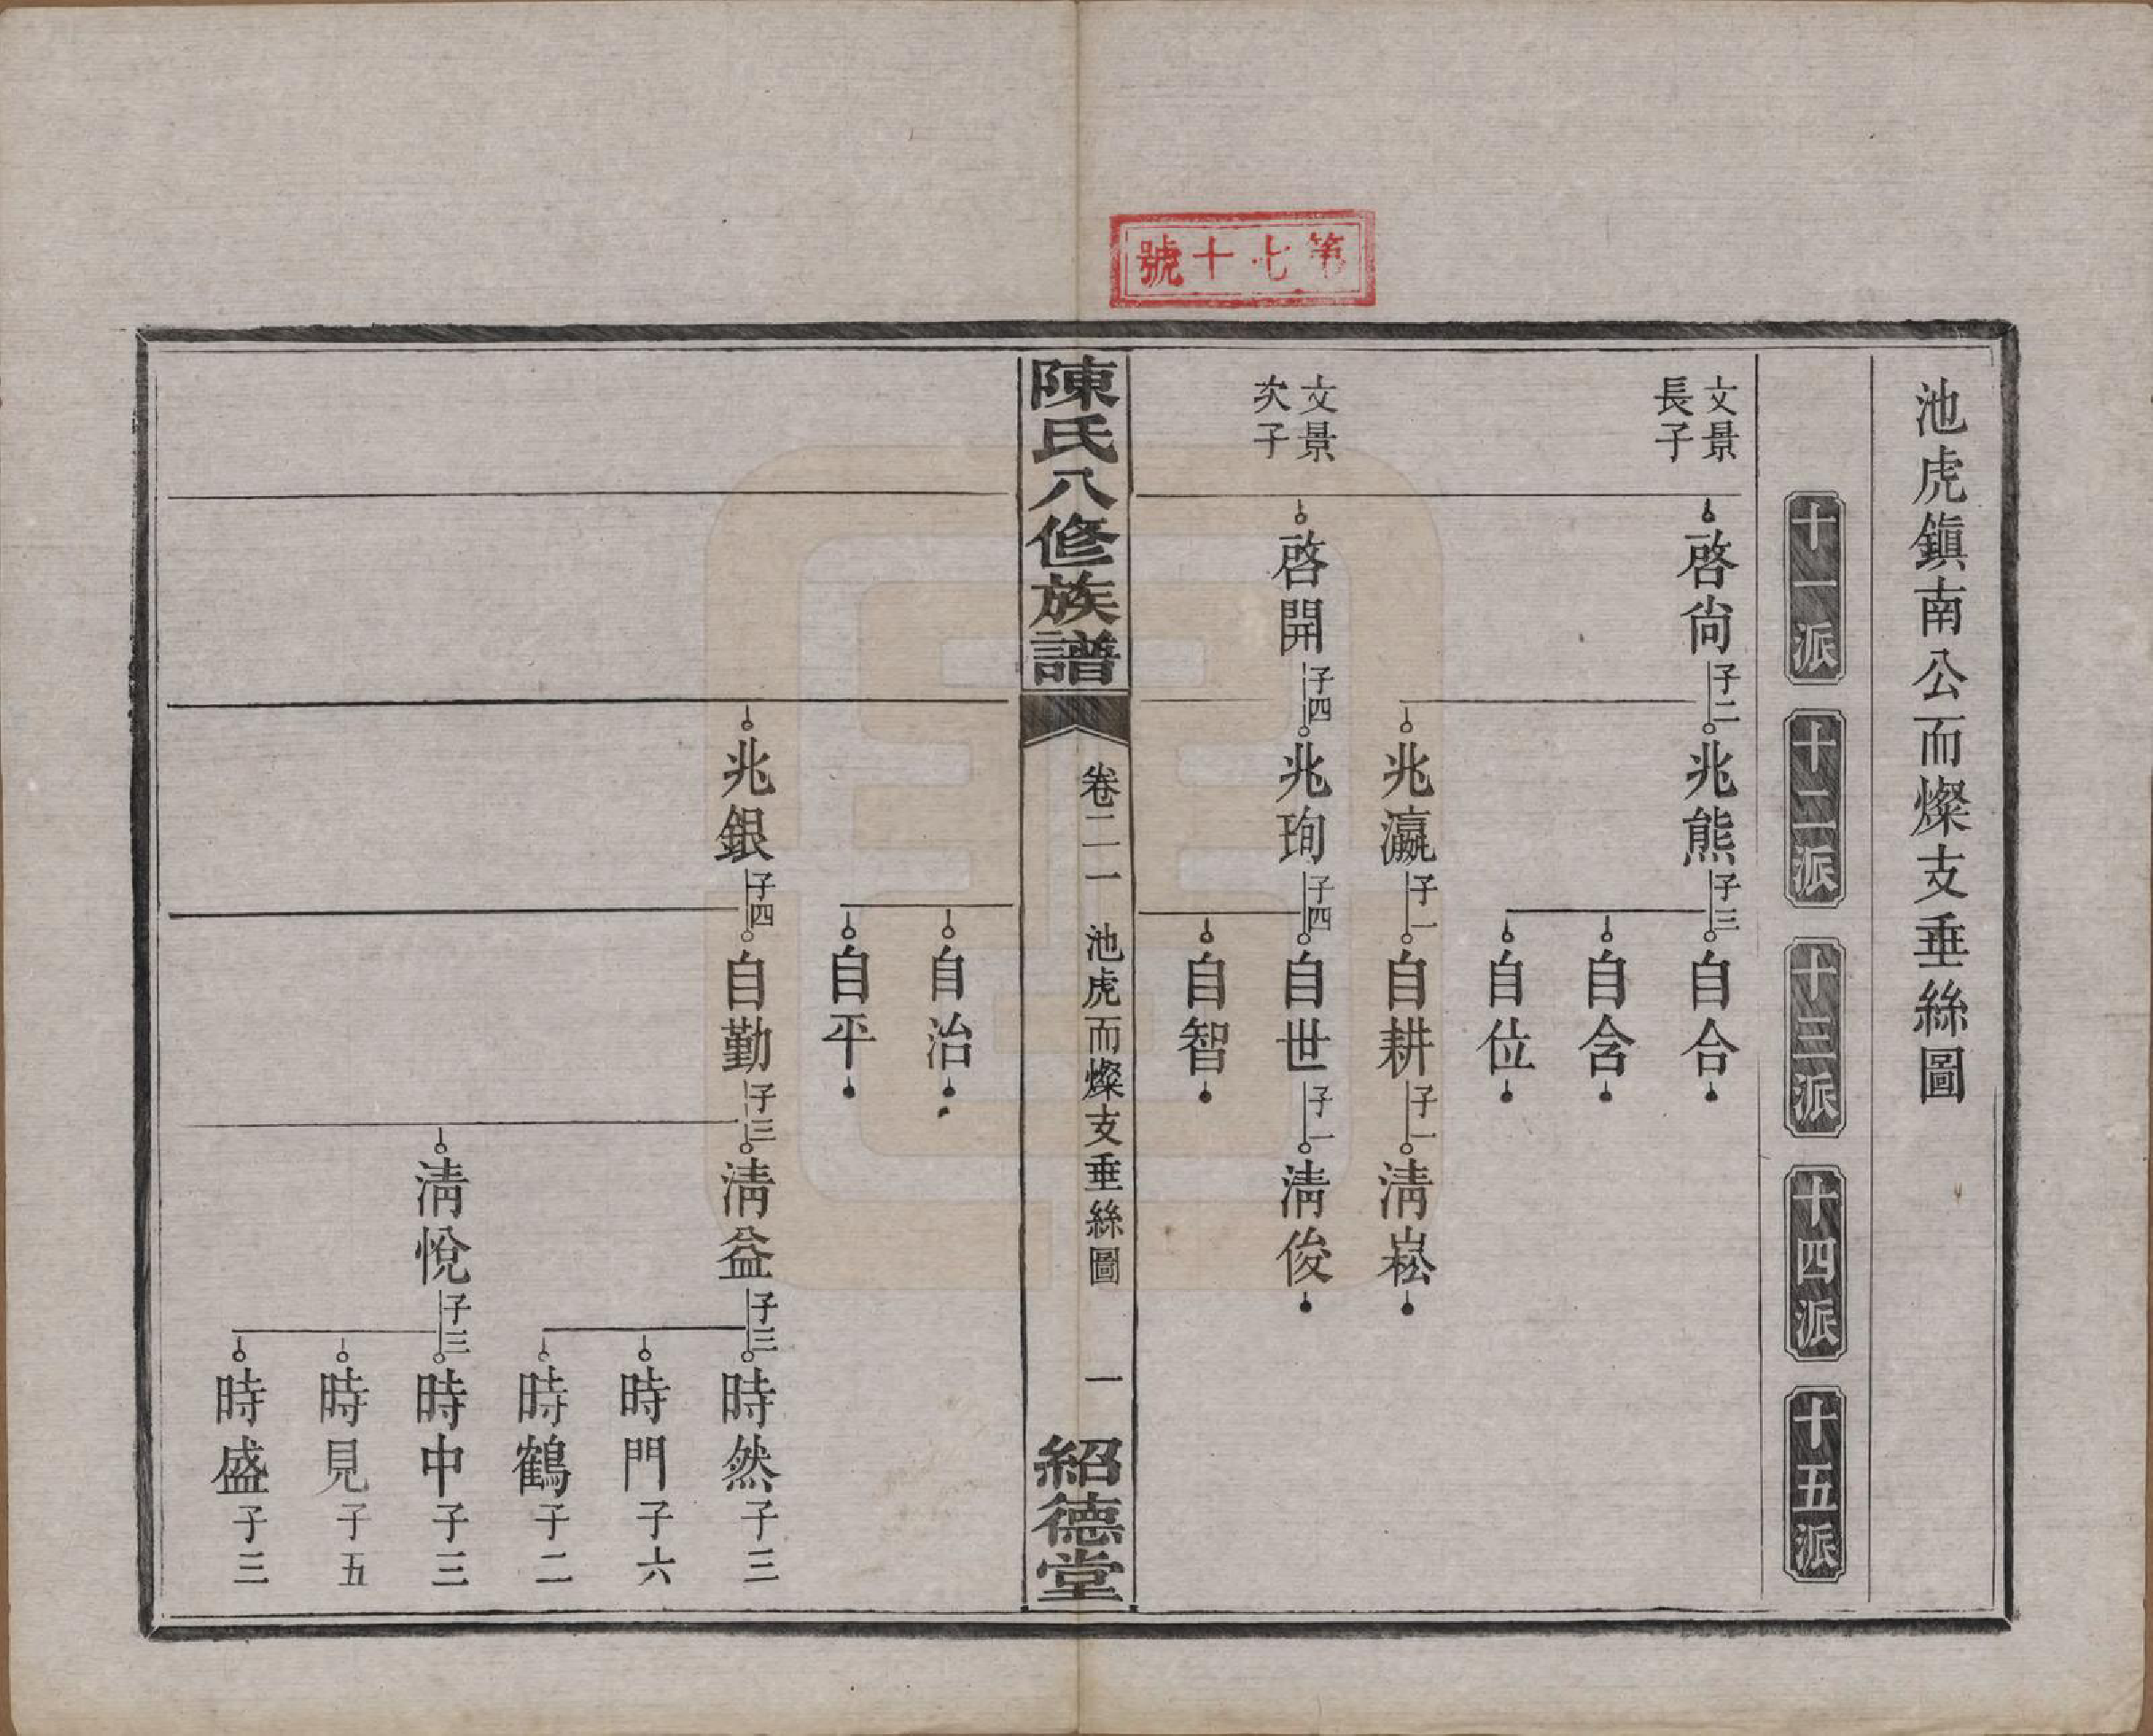 第七十號
池虎鎮南公而燦支垂絲圖
十一派
十二派
十三派
十四派
十五派
文景
長子
啓尙 子二
兆熊 子三
自合
自含
自位
兆瀛 子一
自耕 子一
淸崧
文景
次子
啓開 子四
兆珣 子四
自世 子一
淸俊
自智
陳氏八修族譜
卷二一 池虎而燦支垂絲圖
一
紹德堂
自治
自平
兆銀 子四
自勤 子三
淸益 子三
時然 子三
時門 子六
時鶴 子二
淸悅 子三
時中 子三
時見 子五
時盛 子三